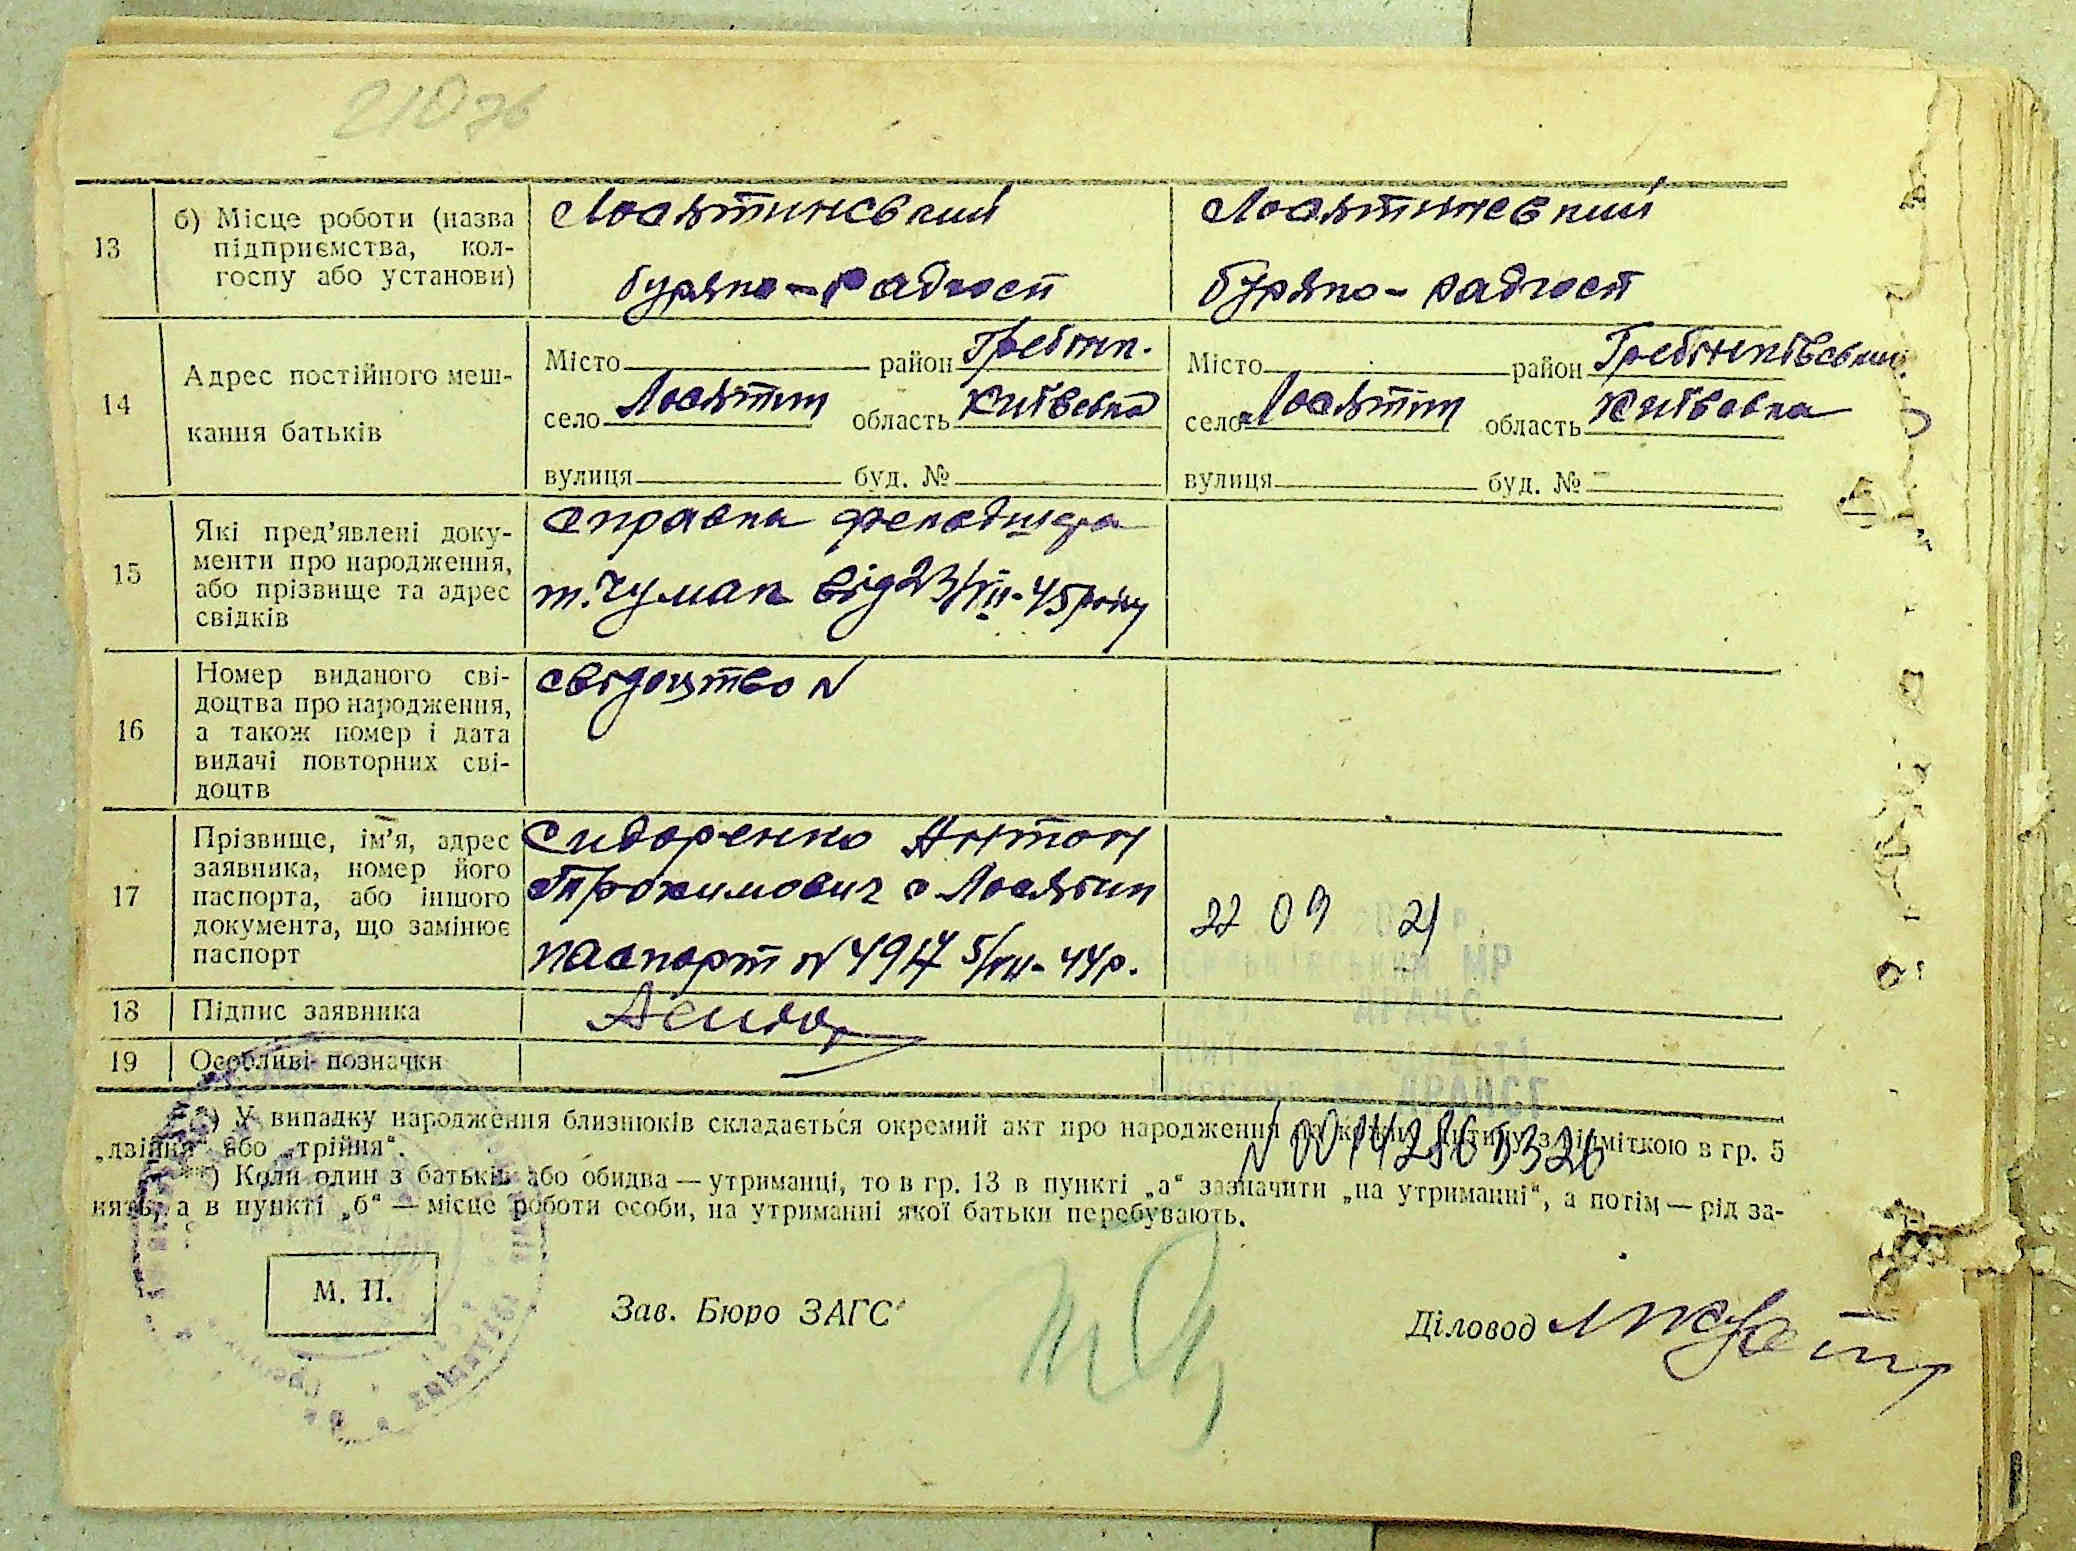 210 зв
13
б) Місце роботи (назва
підприємства, кол-
госпу або установи)
Лосятинський
буряко-радгосп
Лосятинський
буряко-радгосп
14
Адрес постійного меш-
кання батьків
Місто район Гребінк.
село Лосятин область Київська
вулиця буд. №
Місто район Гребінківський
село Лосятин область Київська
вулиця буд. № –
15
Які пред'явлені доку-
менти про народження,
або прізвище та адрес
свідків
справка
т. Чумак від 23/VIII-45 року
16
Номер виданого сві-
доцтва про народження,
а також номер і дата
видачі повторних сві-
доцтв
свідоцтво N
17
Прізвище, ім'я, адрес
заявника, номер його
паспорта, або іншого
документа, що замінює
паспорт
Сидоренко Антон
Трохимович с Лосятин
паспорт N 4917 5/VII-44р.
22 09 21
МР
ДРАЦС
18
Підпис заявника
19
Особливі позначки
*) У випадку народження близнюків складається окремий акт про народження на кожну дитину з відміткою в гр. 5
„двійня“ або „трійня“.
N 00
**) Коли один з батьків або обидва — утриманці, то в гр. 13 в пункті „а“ зазначити „на утриманні“, а потім — рід за-
нять, а в пункті „б“ — місце роботи особи, на утриманні якої батьки перебувають.
М. П.
Зав. Бюро ЗАГС
Діловод